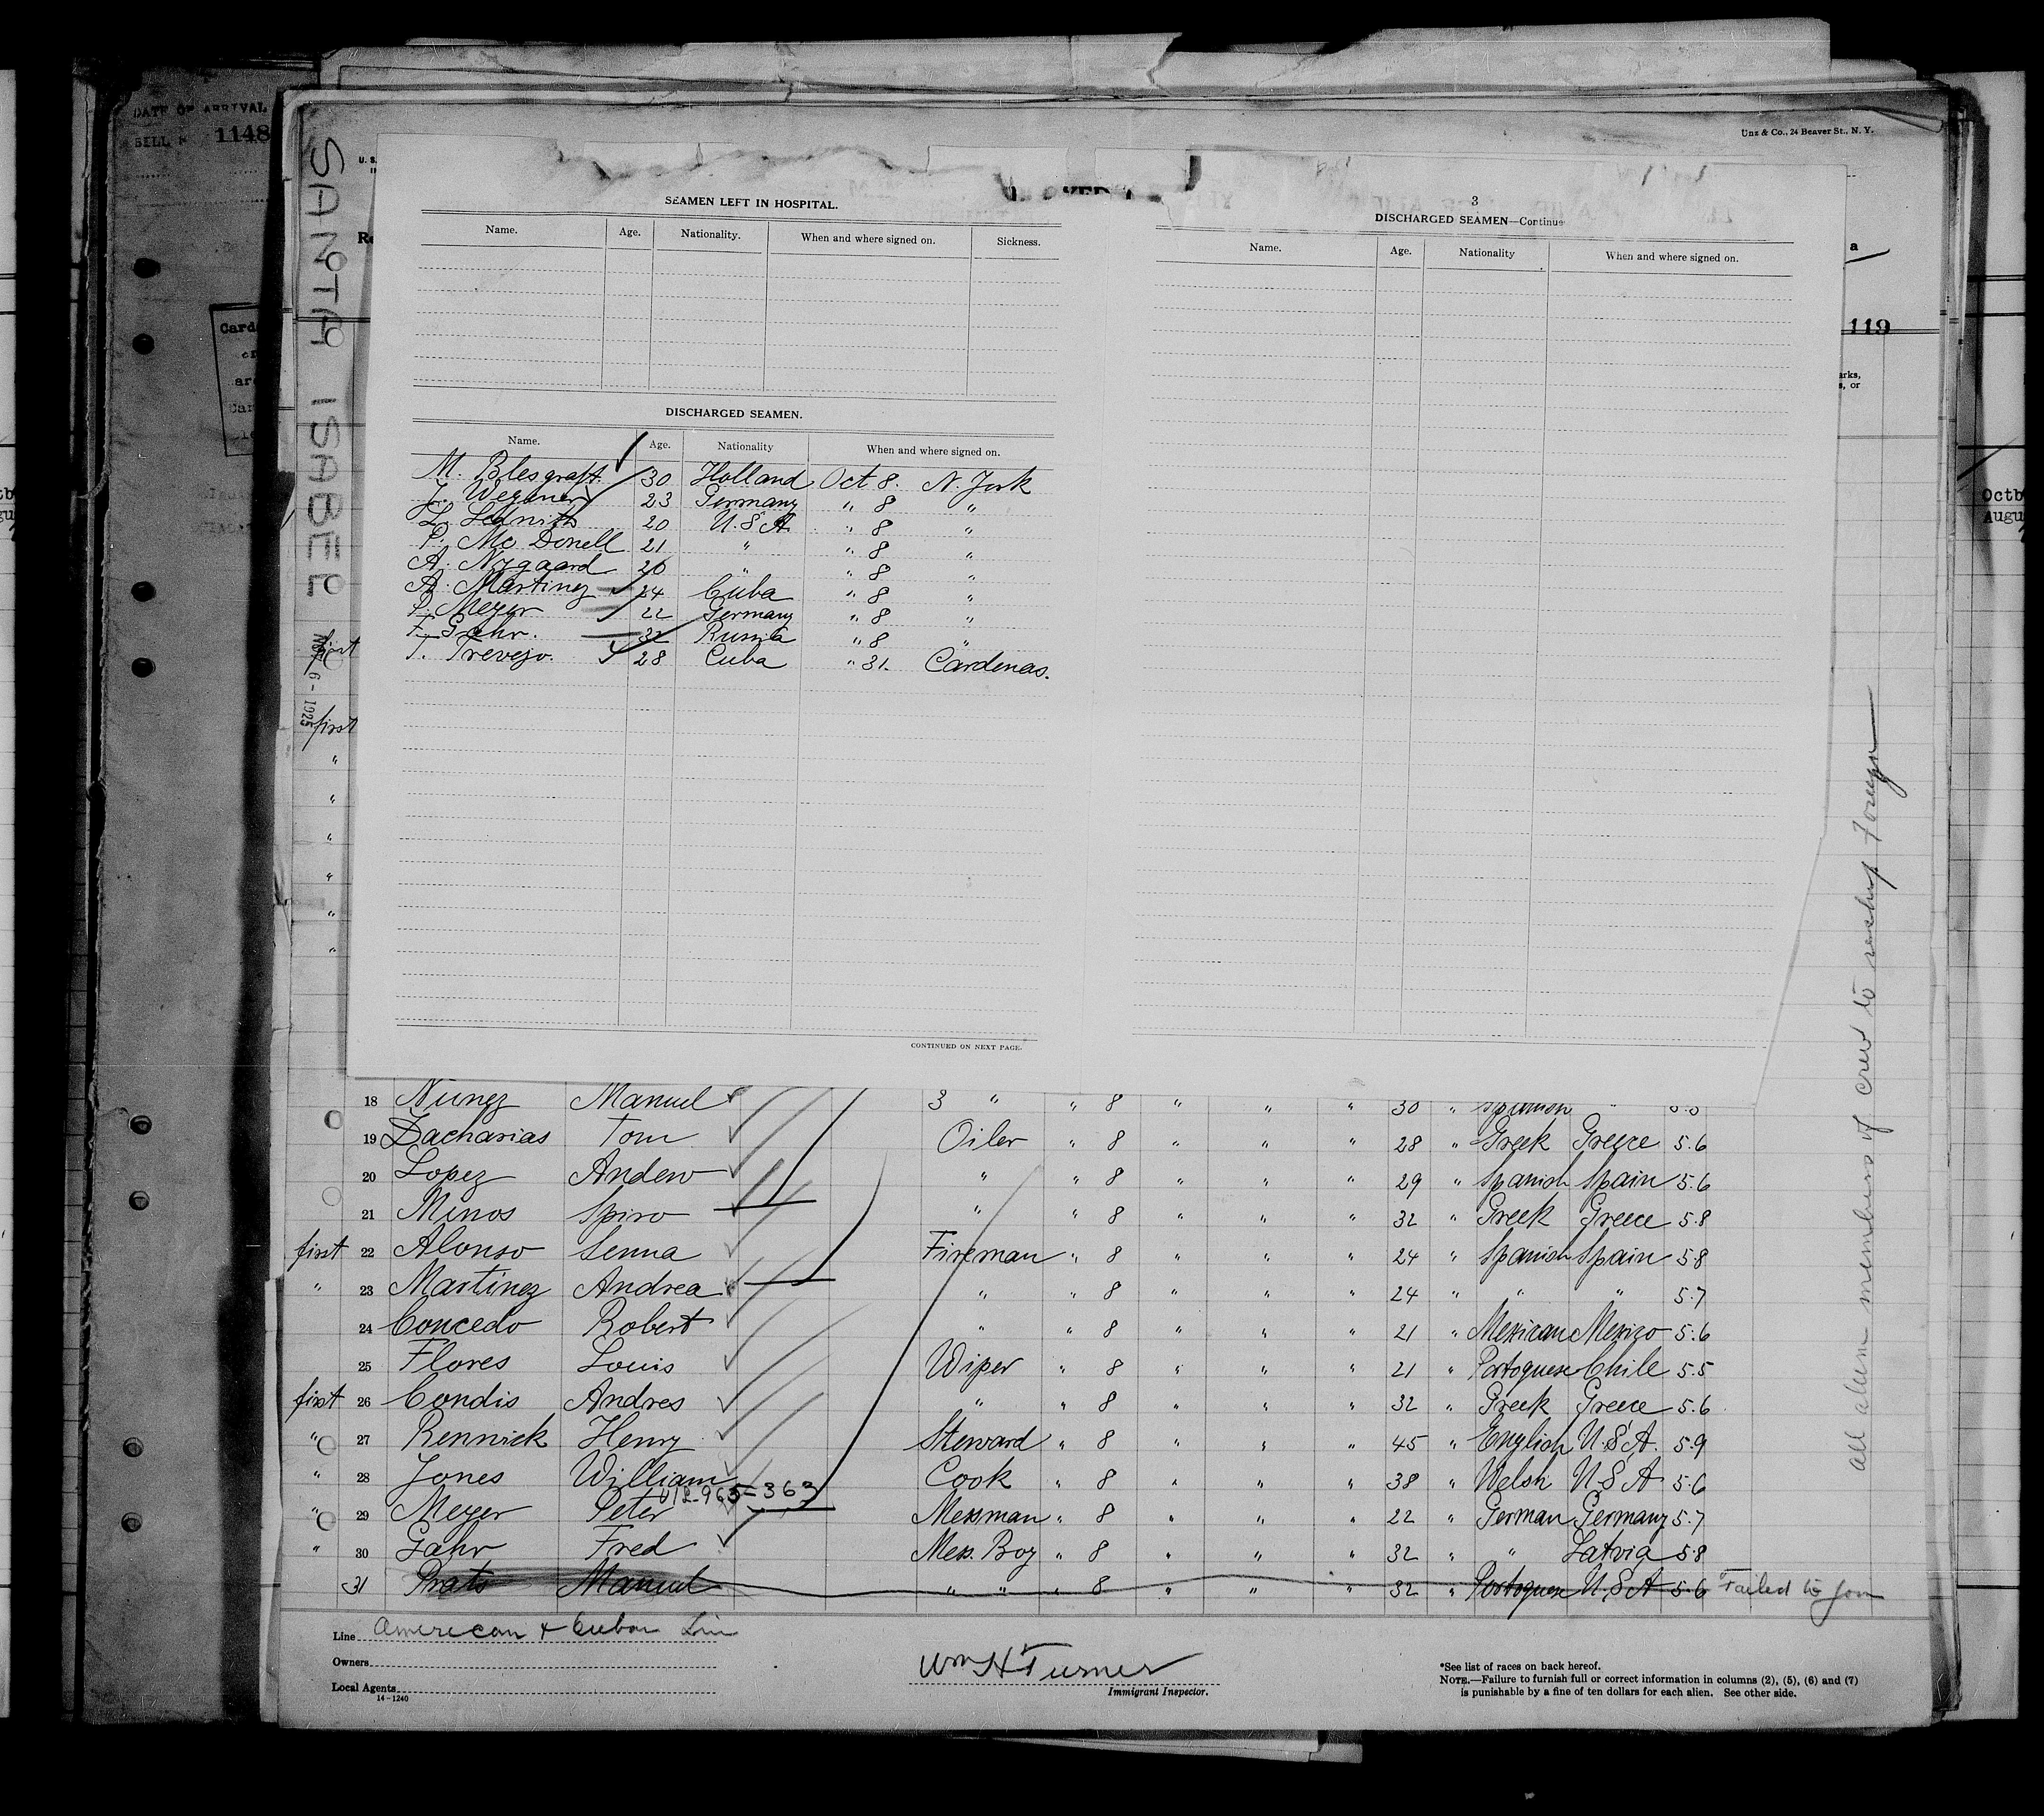 DATE OF ARRIVAL
1148
SANTA ISABEL
6 - 1925
Unz & Co., 24 Beaver St., N. Y.
119
SEAMEN LEFT IN HOSPITAL.
Name. Age. Nationality. When and where signed on. Sickness.
DISCHARGED SEAMEN.
Name. Age. Nationality When and where signed on.
M. Blesgraft. 30 Holland Oct 8. N. York
J. Wegener 23 Germany " 8 "
L. 20 U.S.A. " 8 "
P. Mc Donell 21 " " 8 "
A. Nygaard 20 " 8 "
A. Martinez 24 Cuba " 8 "
P. Meyer 22 Germany " 8 "
F. Gahr. 32 Russia " 8 "
T. Trevejo. 28 Cuba " 31. Cardenas.
CONTINUED ON NEXT PAGE.
3
DISCHARGED SEAMEN—Continue
Name. Age. Nationality When and where signed on.
first
first
"
"
"
"
"
"
18 Nunez Manuel 3 " " 8 " " " 30 " Spanish "
19 Zacharias Tom Oiler " 8 " " " 28 " Greek Greece 5.6
20 Lopez Andew " " 8 " " " 29 " Spanish Spain 5.6
21 Minos Spiro " " 8 " " " 32 " Greek Greece 5.8
first 22 Alonso Senna Fireman " 8 " " " 24 " Spanish Spain 5.8
" 23 Martinez Andrea " " 8 " " " 24 " " " 5.7
24 Concedo Robert " " 8 " " " 21 " Mexican Mexico 5.6
25 Flores Louis Wiper " 8 " " " 21 " Portoguese Chile 5.5
first 26 Condis Andres " " 8 " " " 32 " Greek Greece 5.6
" 27 Rennick Henry Steward " 8 " " " 45 " English U.S.A. 5.9
" 28 Jones William Cook " 8 " " " 38 " Welsh U.S.A. 5.6
" 29 Meyer Peter Messman " 8 " " " 22 " German Germany 5.7
" 30 Gahr Fred Mess. Boy " 8 " " " 32 " " Latvia 5.8
31 Prats Manuel " " " 8 " " " 32 " Portoguese U.S.A 5.6 Failed to join
All alien members of crew to reship foreign
Line American & Cuban Lin
Owners
Local Agents
14-1240
Wm H Turner
Immigrant Inspector.
*See list of races on back hereof.
NOTE.—Failure to furnish full or correct information in columns (2), (5), (6) and (7)
is punishable by a fine of ten dollars for each alien. See other side.
Octb
Augu